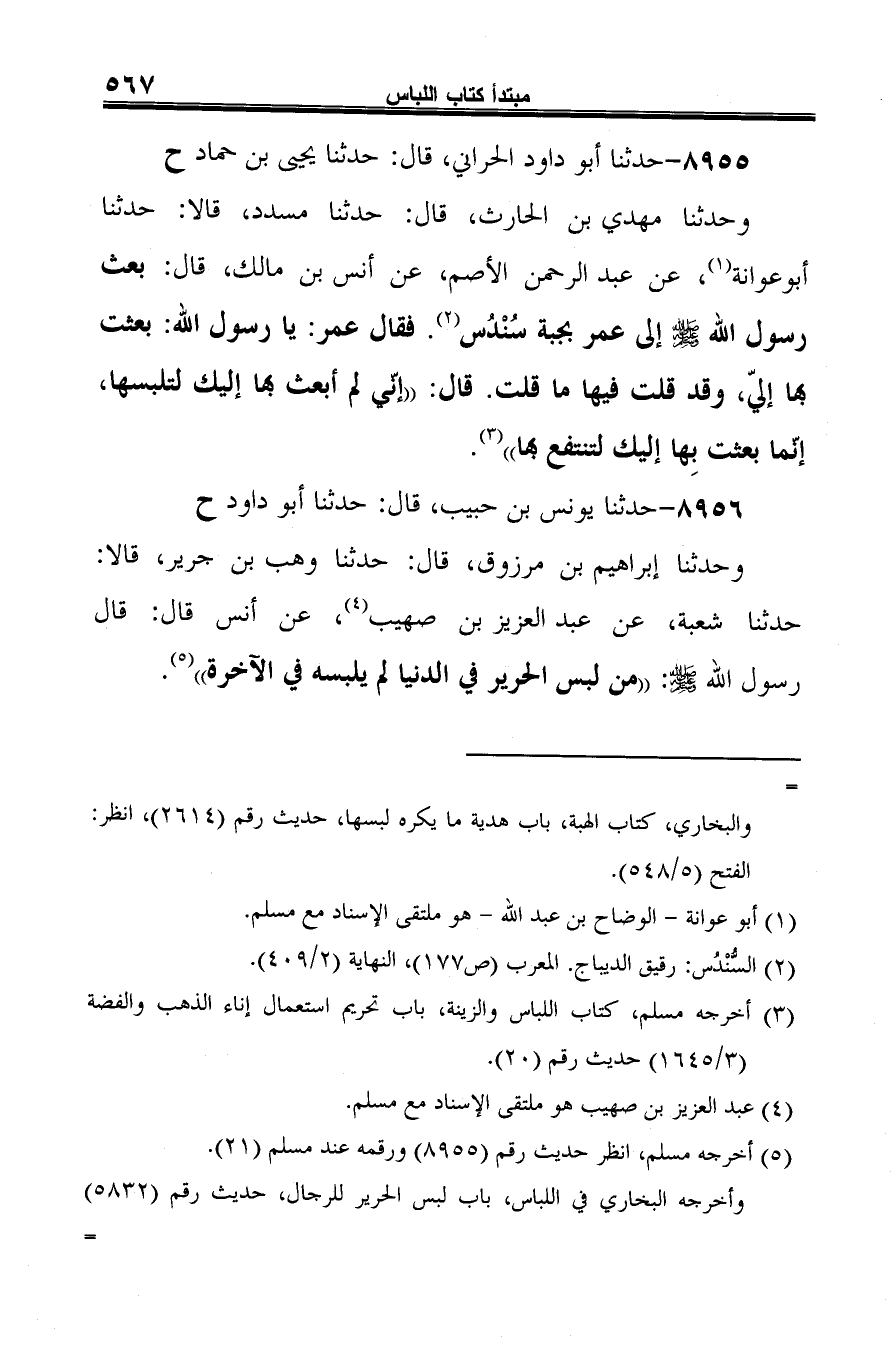 مبتدأ كتاب اللباس ٥٦٧
٨٩٥٥-حدثنا أبو داود الحراني، قال: حدثنا يحيى بن حماد ح
وحدثنا مهدي بن الحارث، قال: حدثنا مسدد، قالا: حدثنا
أبوعوانة(١)، عن عبد الرحمن الأصم، عن أنس بن مالك، قال: بعث
رسول الله ﷺ إلى عمر بجبة سُنْدُس(٢). فقال عمر: يا رسول الله: بعثت
بها إليّ، وقد قلت فيها ما قلت. قال: ((إنّي لم أبعث بها إليك لتلبسها،
إنّما بعثت بِها إليك لتنتفع بها))(٣).
٨٩٥٦-حدثنا يونس بن حبيب، قال: حدثنا أبو داود ح
وحدثنا إبراهيم بن مرزوق، قال: حدثنا وهب بن جرير، قالا:
حدثنا شعبة، عن عبد العزيز بن صهيب(٤)، عن أنس قال: قال
رسول الله ﷺ: ((من لبس الحرير في الدنيا لم يلبسه في الآخرة))(٥).
=
والبخاري، كتاب الهبة، باب هدية ما يكره لبسها، حديث رقم (٢٦١٤)، انظر:
الفتح (٥٤٨/٥).
(١) أبو عوانة - الوضاح بن عبد الله - هو ملتقى الإسناد مع مسلم.
(٢) السُّنْدُس: رقيق الديباج. المعرب (ص١٧٧)، النهاية (٤٠٩/٢).
(٣) أخرجه مسلم، كتاب اللباس والزينة، باب تحريم استعمال إناء الذهب والفضة
(١٦٤٥/٣) حديث رقم (٢٠).
(٤) عبد العزيز بن صهيب هو ملتقى الإسناد مع مسلم.
(٥) أخرجه مسلم، انظر حديث رقم (٨٩٥٥) ورقمه عند مسلم (٢١).
وأخرجه البخاري في اللباس، باب لبس الحرير للرجال، حديث رقم (٥٨٣٢)
=